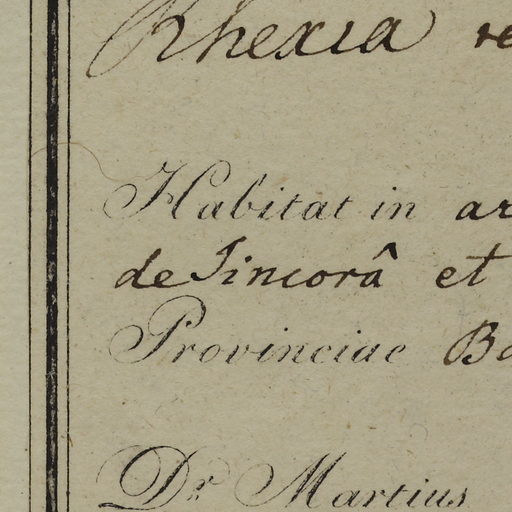 Rhexia re
Habitat in ar
de Sincorâ et
Provinciae Ba
Dr. Martius